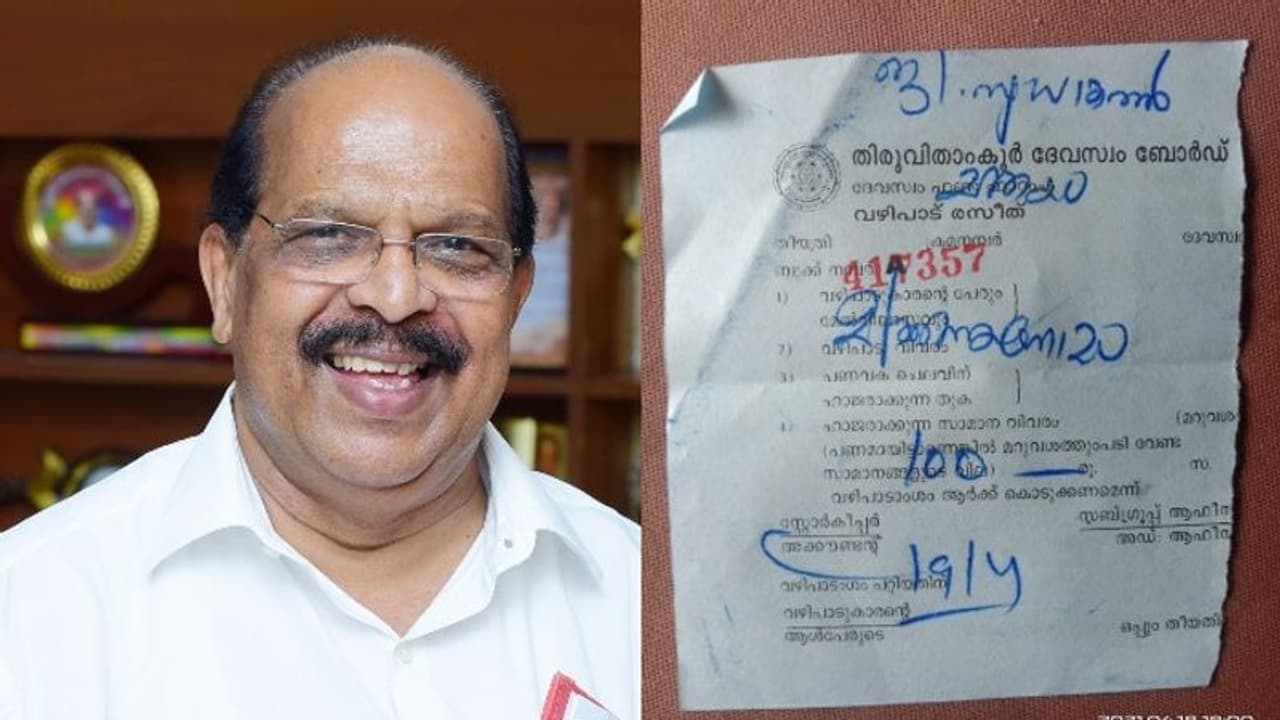 ജി. സുധാകരൻ
തിരുവിതാംകൂർ ദേവസ്വം ബോർഡ്
ദേവസ്വം
വഴിപാട് രസീത്
തീയതി ക്രമനമ്പർ ദേവസ്വം
ബുക്ക് നമ്പർ
417357
1) വഴിപാടുകാരന്റെ പേരും
മേൽവിലാസവും
2) വഴിപാട് വിവരം
3) പണവക ചെലവിന്
ഹാജരാക്കുന്ന തുക
ഹാജരാക്കുന്ന സാമാന വിവരം (മറുവശ
(പണമായിട്ടാണെങ്കിൽ മറുവശത്തുംപടി വേണ്ട
സാമാനങ്ങളുടെ വില) രൂ. സ.
100
വഴിപാടാംശം ആർക്ക് കൊടുക്കണമെന്ന്
സ്റ്റോർകീപ്പർ സബ്ഗ്രൂപ്പ് ആഫീസ
അക്കൗണ്ടന്റ് അഡ: ആഫീ
19/4
വഴിപാടംശം പറ്റിയതിന്
വഴിപാടുകാരന്റെ
ആൾപേരുടെ ഒപ്പും തീയതി